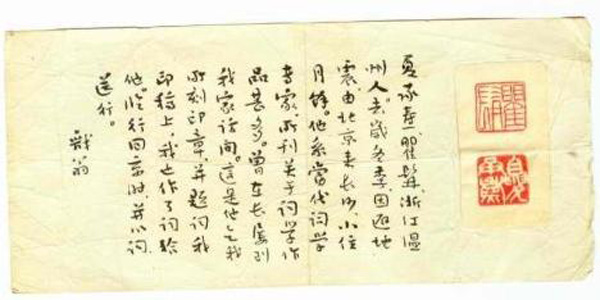 瞿髯
夏承燾
夏承焘一瞿髯,浙江温
州人。去歲冬季,因避地
震,由北京来长沙,小住
月馀。他系當代词学
专家,所刊关于词学作
品甚多。曾在长屡到
我家访问。這是他乞我
所刻印章,并题词我
印稿上,我也作了词给
他。临行回京时,并以词
送行。
戡翁